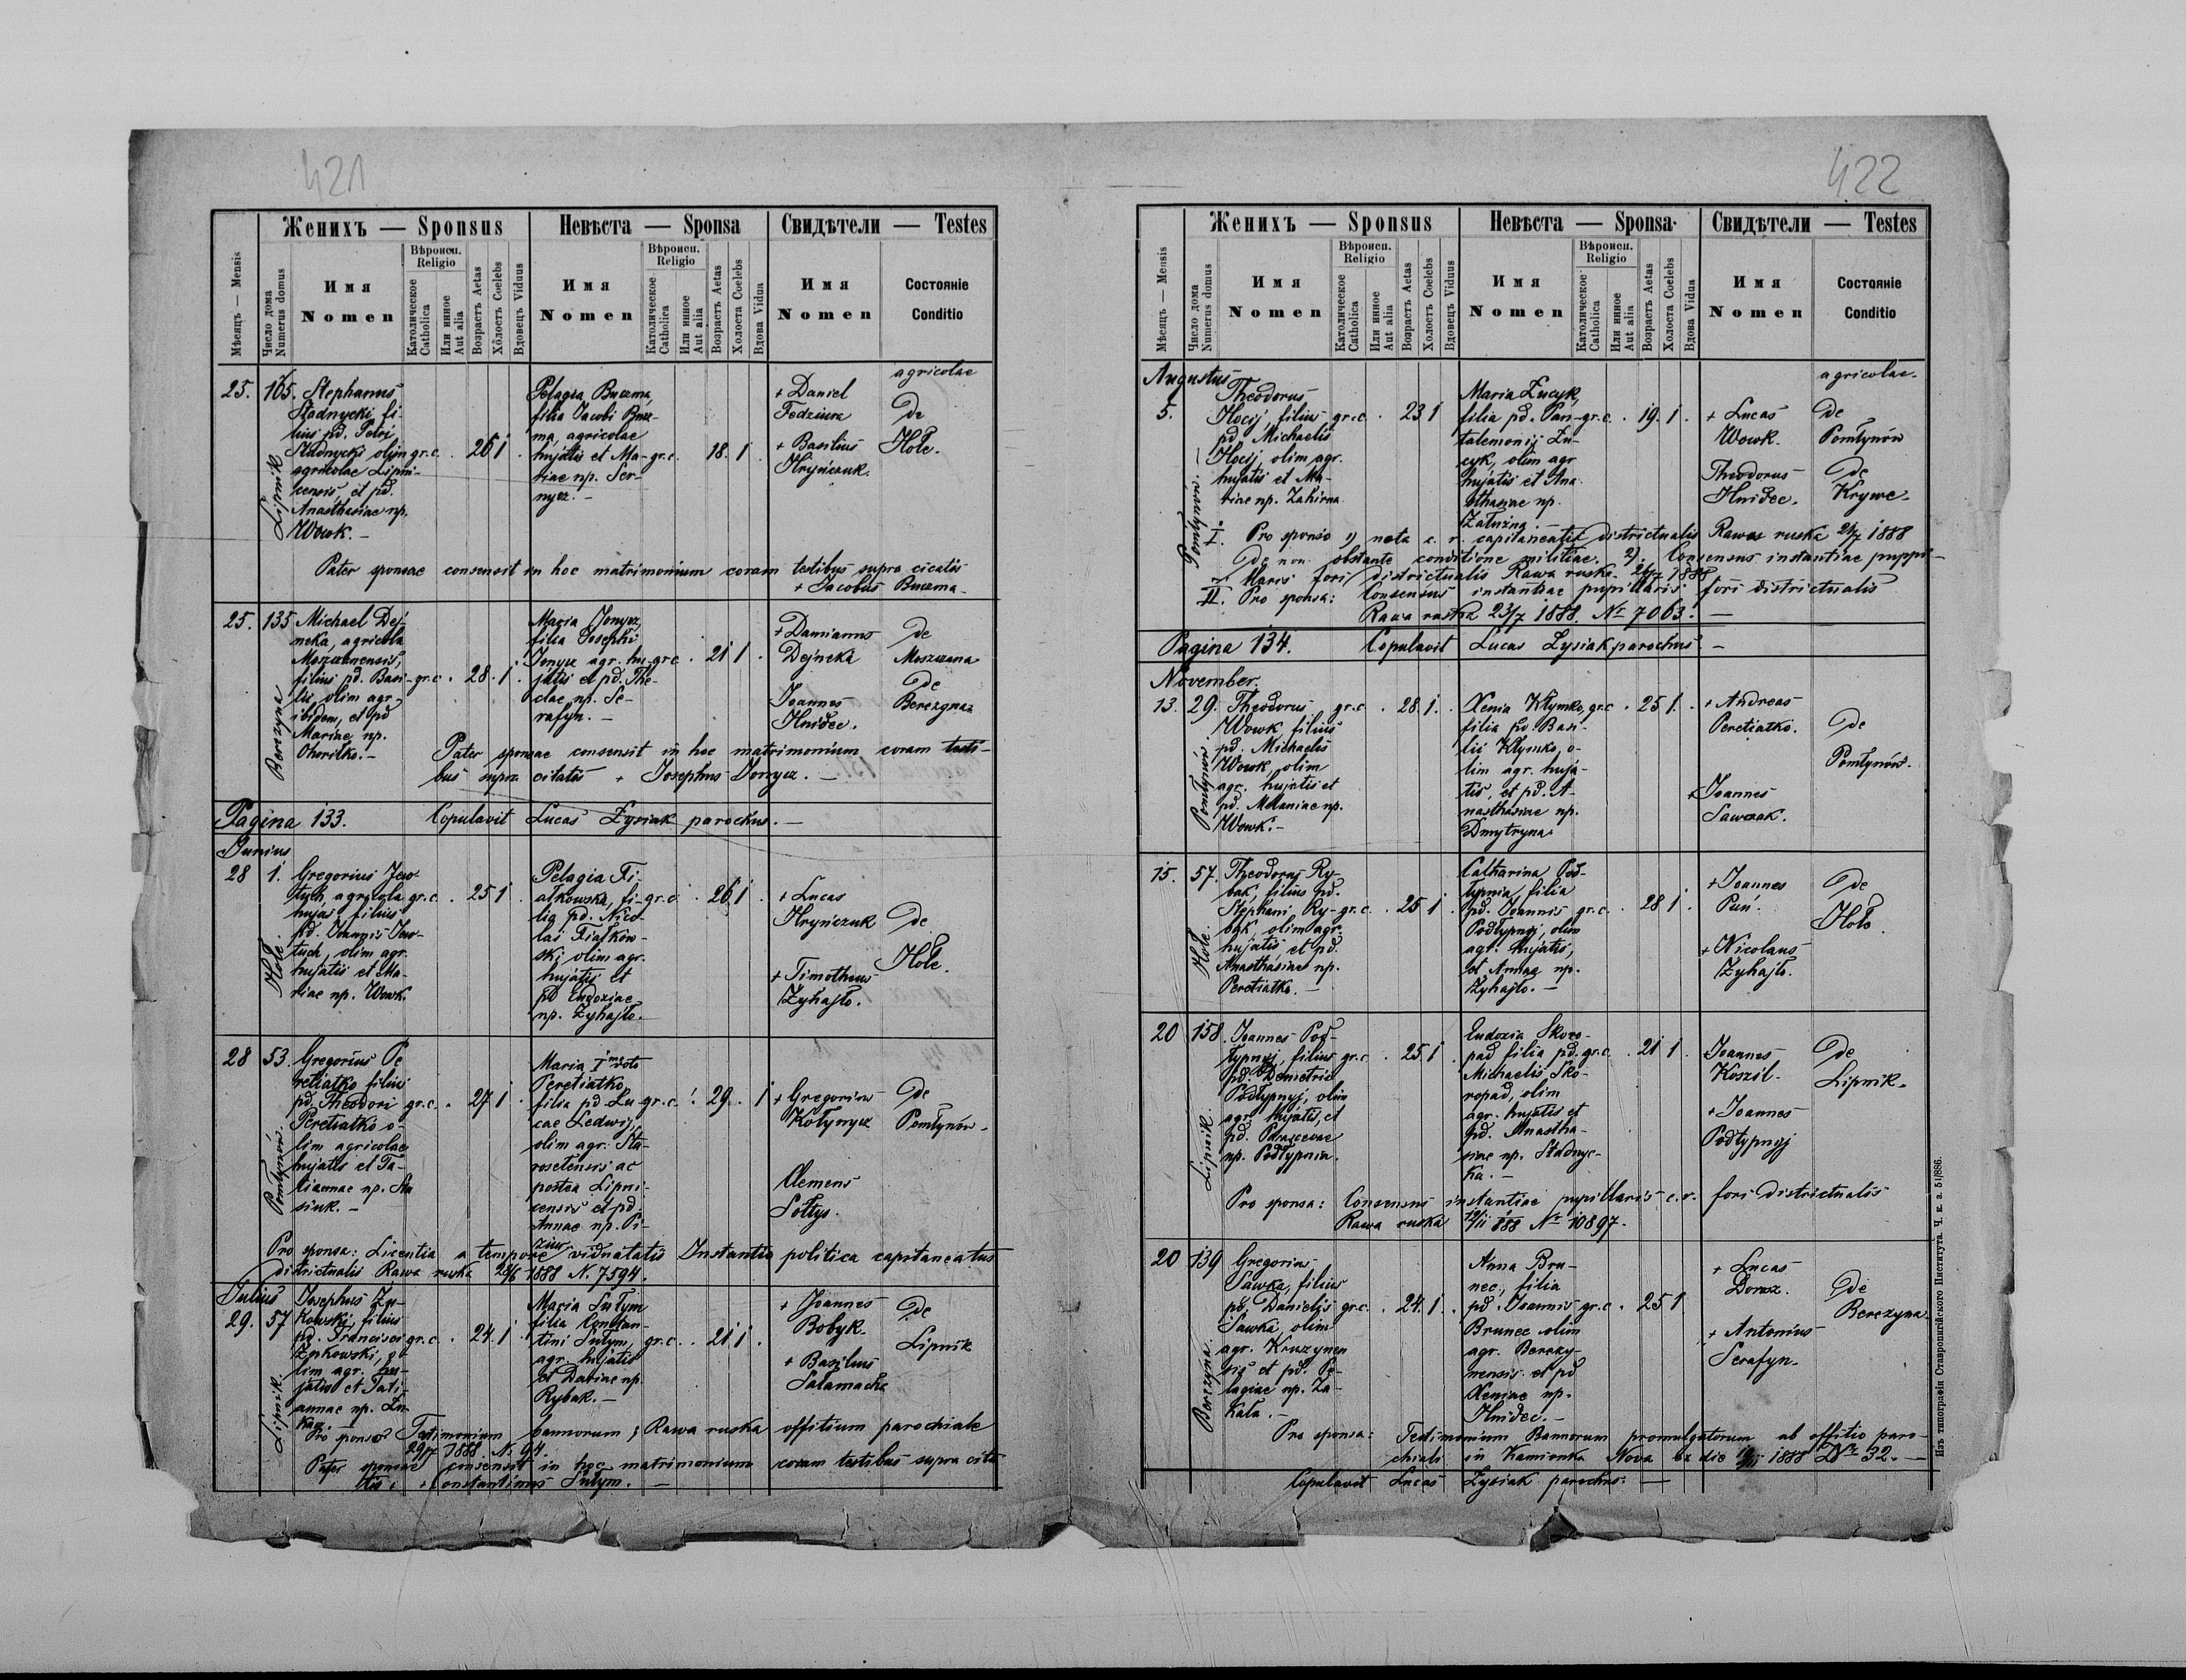 421
Женихъ — Sponsus
Невѣста — Sponsa
Свидѣтели — Testes
Мѣсяцъ — Mensis
Число дома
Numerus domus
Имя
Nomen
Вѣроисп.
Religio
Католическое
Catholica
Или иное
Aut alia
Возрастъ Aetas
Холостъ Coelebs
Вдовецъ Viduus
Имя
Nomen
Вѣроисп.
Religio
Католическое
Catholica
Или иное
Aut alia
Возрастъ Aetas
Холоста Coelebs
Вдова Vidua
Имя
Nomen
Состояніе
Conditio
agricolae
25. 165. Lipnik
Stephanus
Stadnycki, fi-
lius pd. Petri
Stadnycki olim gr.c. . 26 1 .
agricolae Lipni-
censis, et pd.
Anasthasiae np.
Wowk. —
Pelagia Buczma,
filia Jacobi Bucz-
ma, agricolae
hujatis et Ma- gr.c. 18. 1 .
riae np. Ser-
nycz. —
+ Daniel
Fedziura
+ Basilius
Hryńczuk.
De
Hołe.
Pater sponsae consensit in hoc matrimonium coram testibus supra citatis
+ Jacobus Buczma
25. 135 Berezyna
Michael Dej-
neka, agricola
Moszczanensis,
filius pd. Basi- gr.c. . 28. 1 .
lii, olim agr.
ibidem, et pd
Mariae np.
Ohorilko. —
Maria Jonycz,
filia Josephi
Jonycz agr. hu- gr.c . 21 1 .
jatis et pd. The-
clae np. Se-
rafyn. —
+ Damianus
Dejneka
Joannes
Hnidec.
De
Moszczana
De
Berezyna
Pater sponsae consensit in hoc matrimonium coram testi-
bus supra citatis + Josephus Jonycz. —
Pagina 133. Copulavit Lucas Łysiak parochus. —
Junius
28 1. Hołe.
Gregorius Jew-
tuch agricola gr.c. . 25 1 .
hujas filius
pd. Joannis Jew-
tuch, olim agr.
hujatis et Ma-
riae np. Wowk.
Pelagia Fi-
atkowska, fi- gr.c . 26 1 .
lia pd. Nico-
lai Fiatkow-
ski olim agr.
hujatis et
pd Eudoxiae
np. Zyhajło.
+ Lucas
Hryńczuk
+ Timotheus
Zyhajło.
De
Hołe.
28 53. Pomłynów.
Gregorius Pe
retiatko filius
pd. Theodori gr.c. . 27 1 .
Peretiatko o-
lim agricolae
hujatis et Ta-
tiannae np. Sta
siuk. —
Maria I<sup>mo</sup> voto
Peretiatko
filia pd Lu- gr.c. . 29. . 1
cae Ledwij,
olim agr. Sta-
rosielensis ac
postea Lipni-
censis et pd.
Annae np. Pi-
+ Gregorius
Kotynycz
Clemens
Sołtys.
De
Pomłynów.
Pro sponsa: Licentia a tempore viduitatis Instantia politica capitaneatus
districtualis Rawa ruska 28/6 1888 N. 7594.
Julius
29. 57 Lipnik.
Josephus Żu-
kowski, filius
pd. Francisci gr.c. . 24. 1 .
Żukowski, o-
lim agr. hu-
jatis et Tati-
annae np.
Maria Sułym
filia Constan-
tini Sułym, gr.c. . 21 1 .
agr. hujatis
et Dariae np.
Rybak. —
+ Joannes
Bobyk
+ Basilius
Sałamacha
De
Lipnik
Pro sponso Testimonium bannorum ; Rawa ruska offitium parochiale
29/7 1888 N. 94.
Pater sponsae consensit in hoc matrimonium coram testibus supra cita
tis : + Constantinus Sułym. —
422
Женихъ — Sponsus
Невѣста — Sponsa
Свидѣтели — Testes
Мѣсяцъ — Mensis
Число дома
Numerus domus
Имя
Nomen
Вѣроисп.
Religio
Католическое
Catholica
Или иное
Aut alia
Возрастъ Aetas
Холостъ Coelebs
Вдовецъ Viduus
Имя
Nomen
Вѣроисп.
Religio
Католическое
Catholica
Или иное
Aut alia
Возрастъ Aetas
Холоста Coelebs
Вдова Vidua
Имя
Nomen
Состояніе
Conditio
Augustus
agricolae.
5. Pomłynów. —
Theodorus
Hocij, filius gr.c . 23 1
pd Michaelis
Hocij, olim agr.
hujatis et Ma-
riae np. Zahirna
Maria Łucyk,
filia pd. Pan- gr.c. . 19. 1 .
talemonij Łu-
cyk, olim agr
hujatis et Ana
sthasiae np.
Załużna. —
+ Lucas
Wowk.
Theodorus
Hnidec.
De
Pomłynów
De
Krywe.
I. Pro sponso 1) nota c. r. capitaneatus districtualis Rawa ruska 24/7 1888
de non obstante conditione militiae. 2) Consensus instantiae puppil-
laris fori districtualis Rawa ruska 24/7 1888
II. Pro sponsa: Consensus instantiae pupillaris fori districtualis
Rawa ruska 23/7 1888. № 7063. —
Pagina 134. Copulavit Lucas Łysiak parochus. —
November.
13. 29. Pomłynów.
Theodorus gr.c . 28. 1 .
Wowk, filius
pd. Michaelis
Wowk, olim
agr. hujatis et
pd. Melaniae np.
Wowk. —
Xenia Kłymko, gr.c . 25 1 .
filia pd. Basi-
lii Kłymko, o-
lim agr. huja-
tis, et pd. A-
nasthasiae np.
Dmytryna.
+ Andreas
Peretiatko.
+ Joannes
Sawczak.
De
Pomłynów.
15. 57. Hołe.
Theodorus Ry-
bak, filius pd.
Stephani Ry- gr.c. . 25 1 .
bak, olim agr.
hujatis, et pd.
Anasthasiae np.
Peretiatko. —
Catharina Pod-
łypnia, filia
pd. Joannis gr.c. . 28 1 .
Podłypnyj, olim
agr. hujatis,
et Annae np.
Zyhajło. —
+ Joannes
Puń.
+ Nicolaus
Zyhajło.
De
Hołe.
20 158. Lipnik.
Joannes Pod-
łypnyj, filius gr.c. . 25 1 .
pd. Demetrii
Podłypnyj, olim
agr. hujatis, et
pd. Parascevae
np. Podłypnia.
Eudoxia Skoro-
pad filia pd. gr.c. . 21 1 .
Michaelis Sko-
ropad, olim
agr. hujatis et
pd. Anastha-
siae np. Stadnyc-
ka. —
Joannes
Koszil.
+ Joannes
Podłypnyj
De
Lipnik.
Pro sponsa: Consensus instantiae pupillaris c. r. fori districtualis
Rawa ruska 12/11 888 № 10897.
20 139 Berezyna.
Gregorius
Sawka, filius
pd. Danielis gr.c. . 24. 1 .
Sawka, olim
agr. Kruszynen
sis et pd. Pe-
lagiae np. Za-
kała. —
Anna Bru-
nec, filia
pd. Joannis gr.c . 25 1
Brunec olim
agr. Berezy-
nensis et pd
Xeniae np.
Hnidec. —
+ Lucas
+ Antonius
Serafyn.
De
Berezyna
Pro sponsa: Testimonium Bannorum promulgatorum ab offitio paro-
chiali in Kamionka Nova 1888 № 32. —
Copulavit Lucas Łysiak parochus. —
Изъ типографіи Ставропигійского Института. Ч. к. з. 51/886.